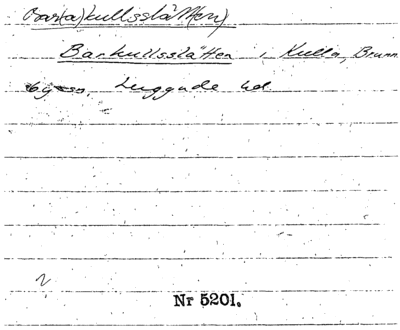 Bar(a)kullsslätt(en)
Barkullsslätten i Kulla, Brunn
byn, Luggude hd
Nr 5201.